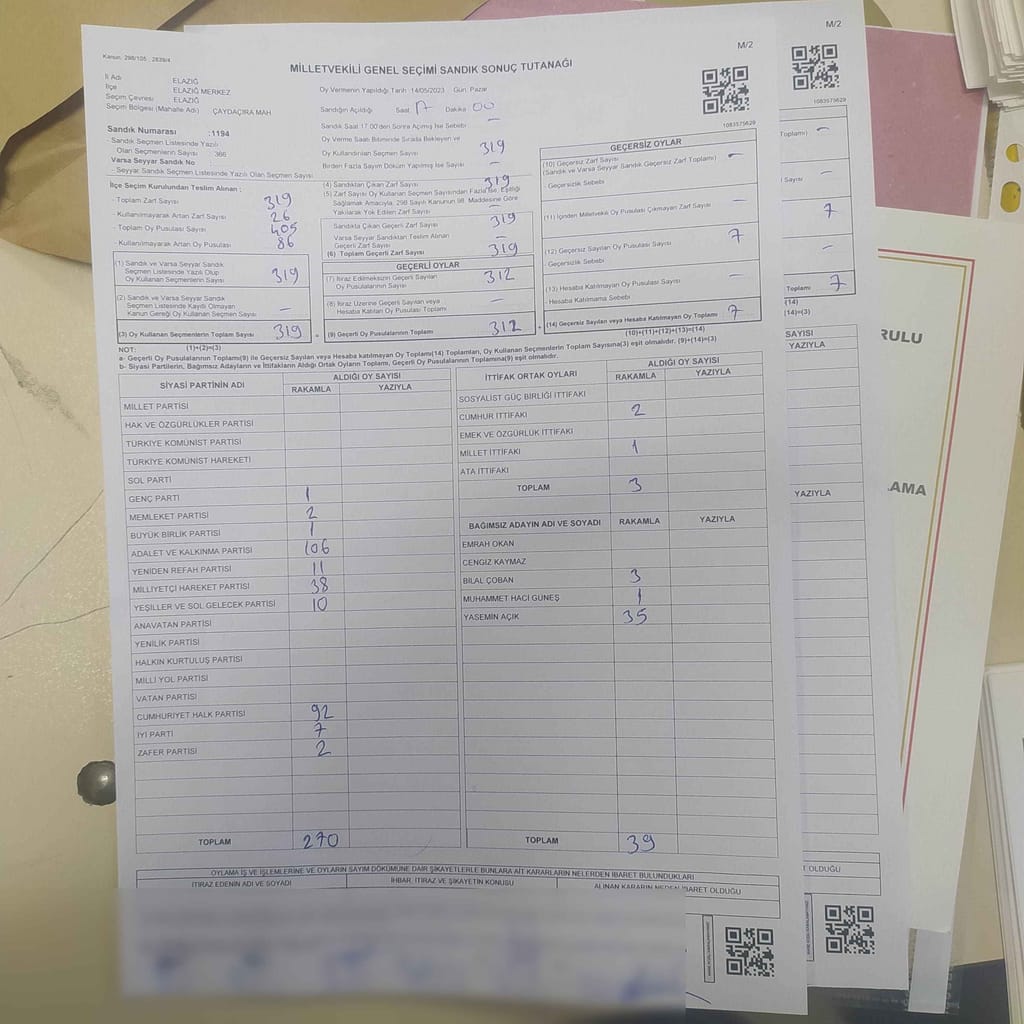 M/2
M/2
Kanun: 298/105 ; 2839/4
MİLLETVEKİLİ GENEL SEÇİMİ SANDIK SONUÇ TUTANAĞI
İl Adı ELAZIĞ
İlçe ELAZIĞ MERKEZ
Seçim Çevresi ELAZIĞ
Seçim Bölgesi (Mahalle Adı) ÇAYDAÇIRA MAH
Oy Vermenin Yapıldığı Tarih :14/05/2023 Gün: Pazar
Sandığın Açıldığı Saat: 17 Dakika 00
Sandık Saat 17.00'den Sonra Açılmış İse Sebebi —
1083575629
1083575629
Sandık Numarası :1194
Sandık Seçmen Listesinde Yazılı
Olan Seçmenlerin Sayısı : 366
Varsa Seyyar Sandık No
- Seyyar Sandık Seçmen Listesinde Yazılı Olan Seçmen Sayısı
Oy Verme Saati Bitiminde Sırada Bekleyen ve
Oy Kullandırılan Seçmen Sayısı 319
Birden Fazla Sayım Döküm Yapılmış İse Sayısı —
İlçe Seçim Kurulundan Teslim Alınan :
- Toplam Zarf Sayısı 319
- Kullanılmayarak Artan Zarf Sayısı 26
- Toplam Oy Pusulası 405
- Kullanılmayarak Artan Oy Pusulası 86
(1) Sandık ve Varsa Seyyar Sandık
Seçmen Listesinde Yazılı Olup
Oy Kullanan Seçmenlerin Sayısı 319
(2) Sandık ve Varsa Seyyar Sandık
Seçmen Listesinde Kayıtlı Olmayan
Kanun Gereği Oy Kullanan Seçmen Sayısı —
(3) Oy Kullanan Seçmenlerin Toplam Sayısı 319
(1)+(2)=(3)
(4) Sandıktan Çıkan Zarf Sayısı 319
(5) Zarf Sayısı Oy Kullanan Seçmen Sayısından Fazla İse, Eşitliği
Sağlamak Amacıyla, 298 Sayılı Kanunun 98. Maddesine Göre
Yakılarak Yok Edilen Zarf Sayısı —
Sandıkta Çıkan Geçerli Zarf Sayısı 319
Varsa Seyyar Sandıktan Teslim Alınan
Geçerli Zarf Sayısı —
(6) Toplam Geçerli Zarf Sayısı 319
GEÇERLİ OYLAR
(7) İtiraz Edilmeksizin Geçerli Sayılan
Oy Pusulalarının Sayısı 312
(8) İtiraz Üzerine Geçerli Sayılan veya
Hesaba Katılan Oy Pusulası Toplamı —
= (9) Geçerli Oy Pusulalarının Toplamı 312
GEÇERSİZ OYLAR
(10) Geçersiz Zarf Sayısı —
(Sandık ve Varsa Seyyar Sandık Geçersiz Zarf Toplamı)
- Geçersizlik Sebebi
(11) İçinden Milletvekili Oy Pusulası Çıkmayan Zarf Sayısı —
(12) Geçersiz Sayılan Oy Pusulası Sayısı 7
- Geçersizlik Sebebi
(13) Hesaba Katılmayan Oy Pusulası Sayısı —
- Hesaba Katılmama Sebebi
+ (14) Geçersiz Sayılan veya Hesaba Katılmayan Oy Toplamı 7
(10)+(11)+(12)+(13)=(14)
NOT:
a- Geçerli Oy Pusulalarının Toplamı(9) ile Geçersiz Sayılan veya Hesaba katılmayan Oy Toplamı(14) Toplamları, Oy Kullanan Seçmenlerin Toplam Sayısına(3) eşit olmalıdır. (9)+(14)=(3)
b- Siyasi Partilerin, Bağımsız Adayların ve İttifakların Aldığı Ortak Oyların Toplamı, Geçerli Oy Pusulalarının Toplamına(9) eşit olmalıdır.
SİYASİ PARTİNİN ADI ALDIĞI OY SAYISI
RAKAMLA YAZIYLA
MİLLET PARTİSİ
HAK VE ÖZGÜRLÜKLER PARTİSİ
TÜRKİYE KOMÜNİST PARTİSİ
TÜRKİYE KOMÜNİST HAREKETİ
SOL PARTİ
GENÇ PARTİ 1
MEMLEKET PARTİSİ 2
BÜYÜK BİRLİK PARTİSİ 1
ADALET VE KALKINMA PARTİSİ 106
YENİDEN REFAH PARTİSİ 11
MİLLİYETÇİ HAREKET PARTİSİ 38
YEŞİLLER VE SOL GELECEK PARTİSİ 10
ANAVATAN PARTİSİ
YENİLİK PARTİSİ
HALKIN KURTULUŞ PARTİSİ
MİLLİ YOL PARTİSİ
VATAN PARTİSİ
CUMHURİYET HALK PARTİSİ 92
İYİ PARTİ 7
ZAFER PARTİSİ 2
TOPLAM 270
İTTİFAK ORTAK OYLARI ALDIĞI OY SAYISI
RAKAMLA YAZIYLA
SOSYALİST GÜÇ BİRLİĞİ İTTİFAKI
CUMHUR İTTİFAKI 2
EMEK VE ÖZGÜRLÜK İTTİFAKI
MİLLET İTTİFAKI 1
ATA İTTİFAKI
TOPLAM 3
BAĞIMSIZ ADAYIN ADI VE SOYADI RAKAMLA YAZIYLA
EMRAH OKAN
CENGİZ KAYMAZ
BİLAL ÇOBAN 3
MUHAMMET HACI GÜNEŞ 1
YASEMİN AÇIK 35
TOPLAM 39
OYLAMA İŞ VE İŞLEMLERİNE VE OYLARIN SAYIM DÖKÜMÜNE DAİR ŞİKAYETLERLE BUNLARA AİT KARARLARIN NELERDEN İBARET BULUNDUKLARI
İTİRAZ EDENİN ADI VE SOYADI İHBAR, İTİRAZ VE ŞİKAYETİN KONUSU ALINAN KARARIN NEDEN İBARET OLDUĞU
Toplamı) —
Sayısı —
7
—
Toplamı 7
(14)
(14)=(3)
SAYISI
YAZIYLA
YAZIYLA
OLDUĞU
RULU
LAMA